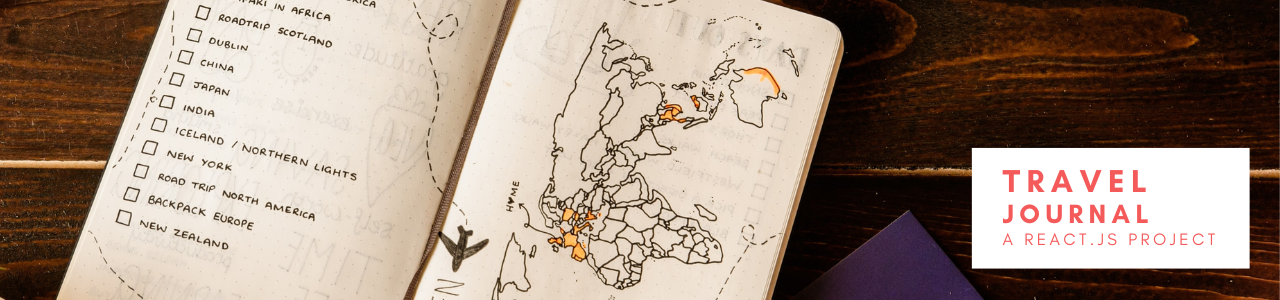 SAFARI IN AFRICA
ROADTRIP SCOTLAND
DUBLIN
CHINA
JAPAN
INDIA
ICELAND / NORTHERN LIGHTS
NEW YORK
ROAD TRIP NORTH AMERICA
BACKPACK EUROPE
NEW ZEALAND
HOME
TRAVEL
JOURNAL
A REACT.JS PROJECT